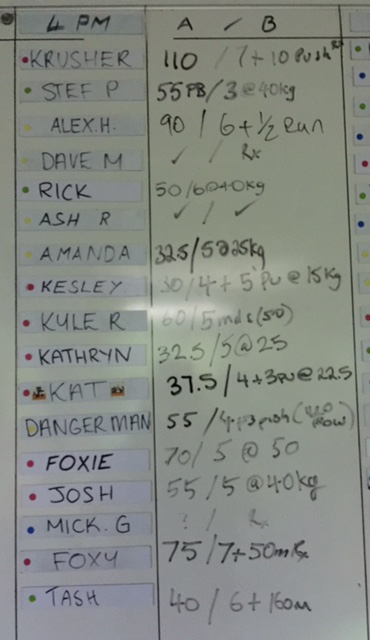 4 PM A / B
KRUSHER 110 / 7 + 10 Push Rx
STEF P 55 PB / 3 @ 40kg
ALEX.H. 90 / 6 + 1/2 Run
DAVE M ✓ / Rx
RICK 50 / 6@40kg
ASH R ✓ / ✓
AMANDA 32.5 / 5@25kg
KESLEY 30 / 4 + 5 PU @ 15kg
KYLE R 60 / 5 (50)
KATHRYN 32.5 / 5@25
KAT 37.5 / 4+3PU@22.5
DANGERMAN 55 / push
FOXIE 70 / 5 @ 50
JOSH 55 / 5 @ 40kg
MICK.G ? / Rx
FOXY 75 / 7+50m Rx
TASH 40 / 6 + 160m